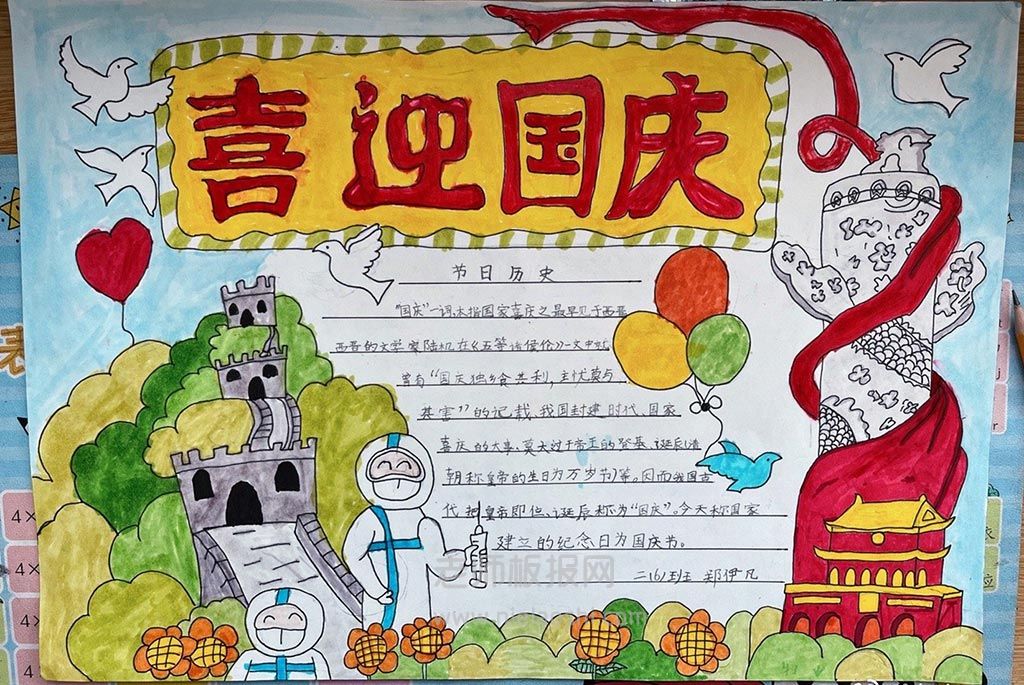 喜迎国庆
节日历史
"国庆"一词,本指国家喜庆之最早见于西晋
西晋的文学家陆机在《五等诸侯论》一文中就
曾有"国庆独飨其利,主忧莫与
其害"的记载、我国封建时代、国家
喜庆的大事,莫大过于帝王的登基、诞辰(清
朝称皇帝的生日为万岁节)等。因而我国古
代把皇帝即位、诞辰称为"国庆"。今天称国家
建立的纪念日为国庆节。
二(6)班 郑伊凡
老师板报网
4×
4×
4×
4